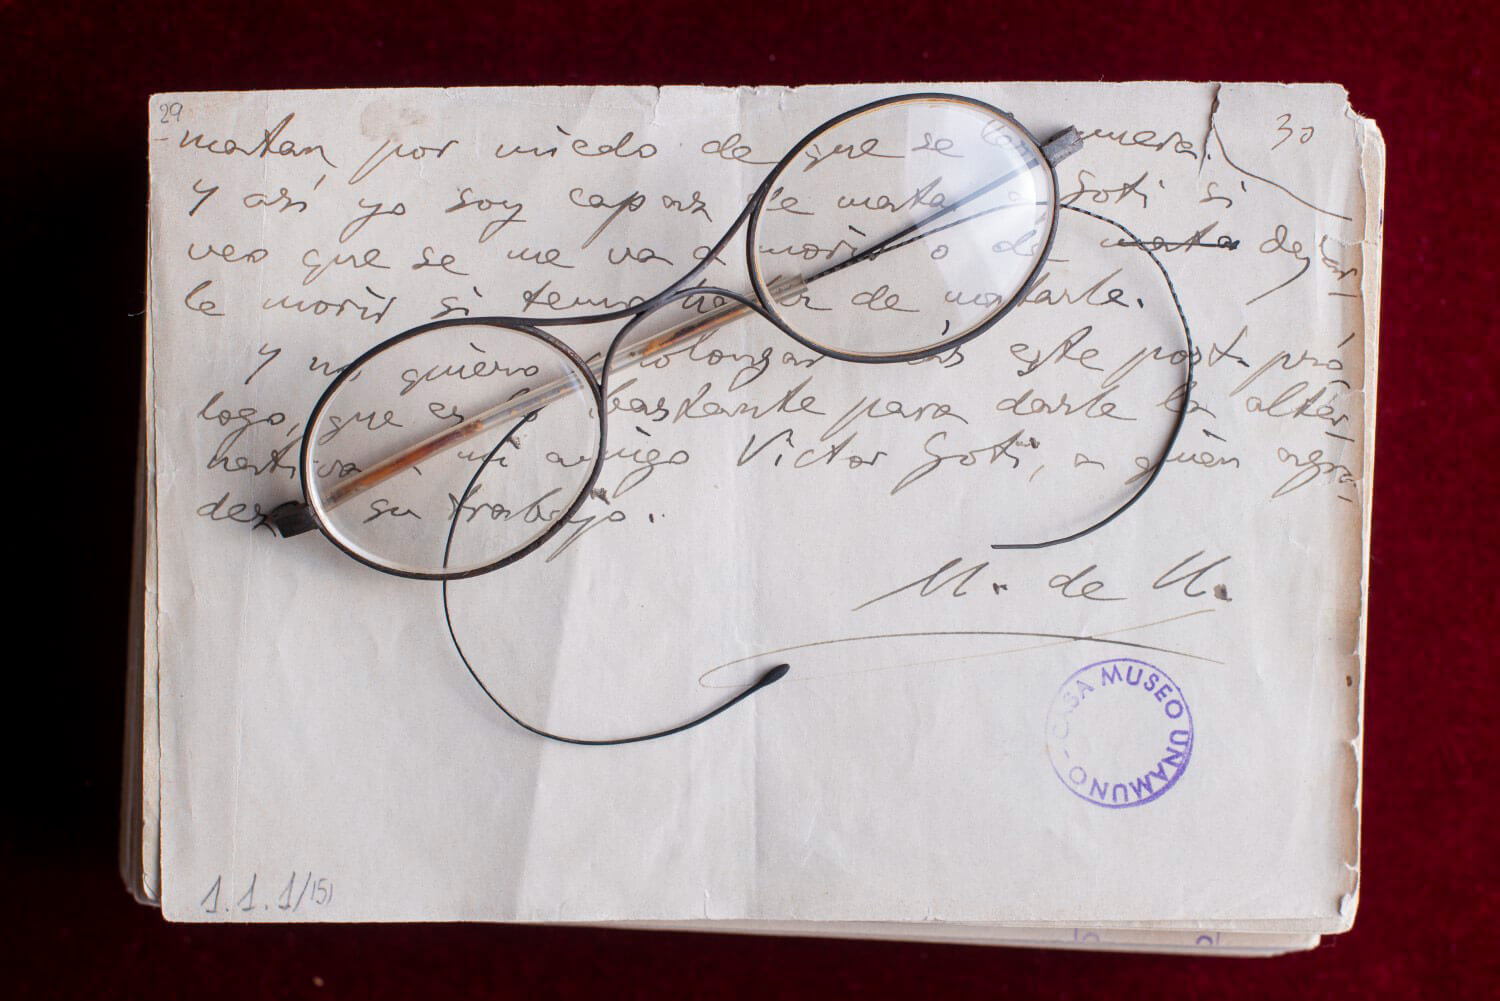 29
30
matan, por miedo de que se les muera.
Y así yo soy capaz de matar a Goti si
veo que se me va a morir o de mata dejar-
le morir si temo haber de matarle.
Y no quiero prolongar más este post-pró-
logo, que es lo bastante para darle la alter-
nativa a mi amigo Víctor Goti, a quien agra-
dezco su trabajo.
M. de U.
CASA MUSEO UNAMUNO -
1.1.1/151